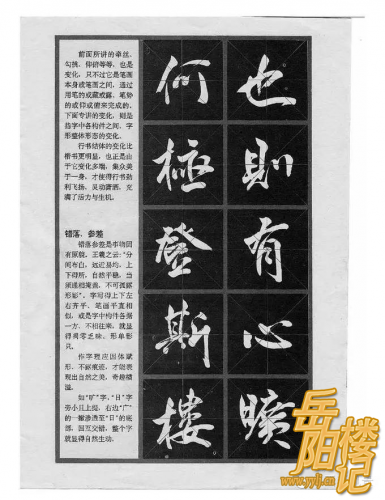 前面所讲的牵丝、
勾挑、仰俯等等，也是
变化，只不过它是笔画
本身或笔画之间，通过
用笔的或藏或露、笔势
的或仰或俯来完成的。
下面专讲的变化，则是
指字中各构件之间、字
形整体形态的变化。
行书结体的变化比
楷书更明显，也正是由
于它变化多端，集众美
于一身，才使得行书劲
利飞扬、灵动潇洒，充
满了活力与生机。
错落，参差
错落参差是事物固
有原貌，王羲之云：“分
间布白，远近易均，上
上下得所，自然平稳，当
须递相掩盖，不可孤露
形影”。字写得上下左
右齐平，笔画平直相
似，或是字中构件各据
一方，不相往来，就显
得凋零乏味、形单影
只。
作字理应因体赋
形，不露痕迹，才能表
现出自然之美，奇趣横
溢。
如“旷”字，“日”字
旁小且上提，右边“广”
的一撇渗透至“日”的底
部，回互交错，整个字
就显得自然生动。
也則有心曠
何極登斯樓
岳阳楼记
www.yylj.cn